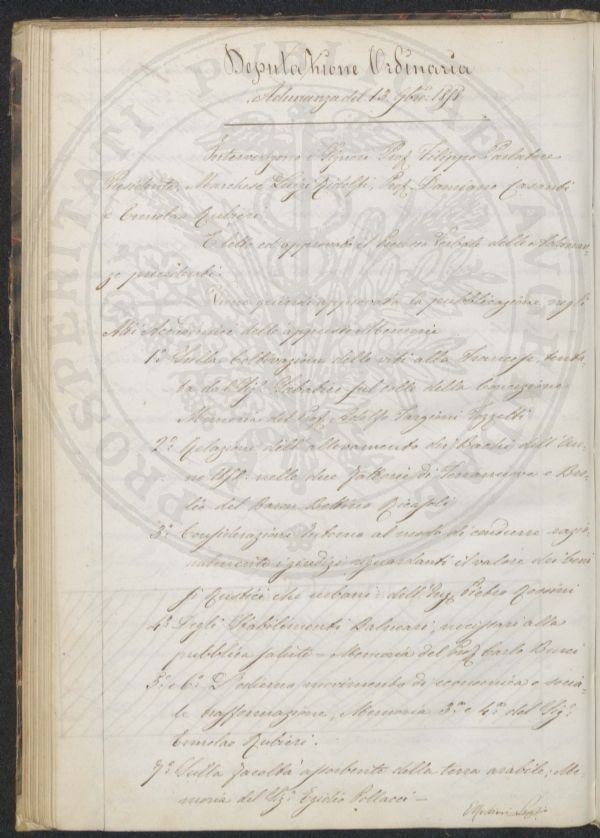 Deputazione Ordinaria
Adunanza del 13. 9bre:
Intervengono i Signori Prof. Filippo Parlatore
Presidente, Marchese Luigi Ridolfi, Prof. Damiano Casanti
e Ermolao Rubieri
È letto ed approvato il Processo Verbale delle Adunan-
ze precedenti.
Viene quindi approvata la pubblicazione negli
Atti Accademici delle appresso Memorie
1º. Sulla Coltivazione delle viti alla Francese, tenta-
ta dal Sig. sul colle della Concezione
Memoria del Prof. Adolfo Targioni Tozzetti
2º. Relazione dell'allevamento dei Bachi dell'An-
no nelle due Fattorie di Terranuova e Bro-
lio del Baron Bettino Ricasoli
3º. Considerazioni Intorno al modo di condurre razio-
nalmente i giudizi riguardanti il valore dei beni
sì Rustici che urbani - dell'Ing. Pietro
4º. Degli Stabilimenti Balneari, necessari alla
pubblica salute - Memoria del Prof. Carlo Burci
5º. e 6º. D'odierno movimento di economica e socia-
le trasformazione, Memoria 3ª. e 4ª. del Sig.
Ermolao Rubieri.
7º. Sulla facoltà assorbente della terra arabile; Me-
moria del Sig. Egidio Pollacci -
PROSPERITATI PUBLICAE AUGENDAE